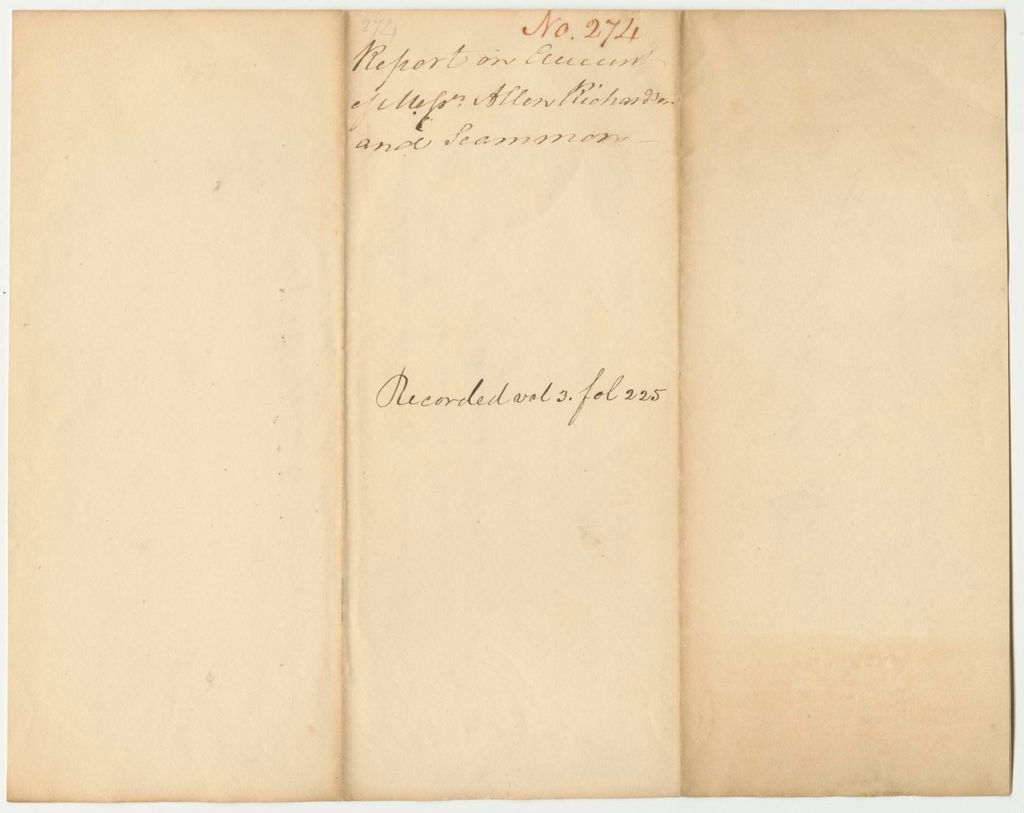 274
No. 274
Report on Account
of Messrs. Allen Richardson
and Scammon
Recorded vol 3. fol 225